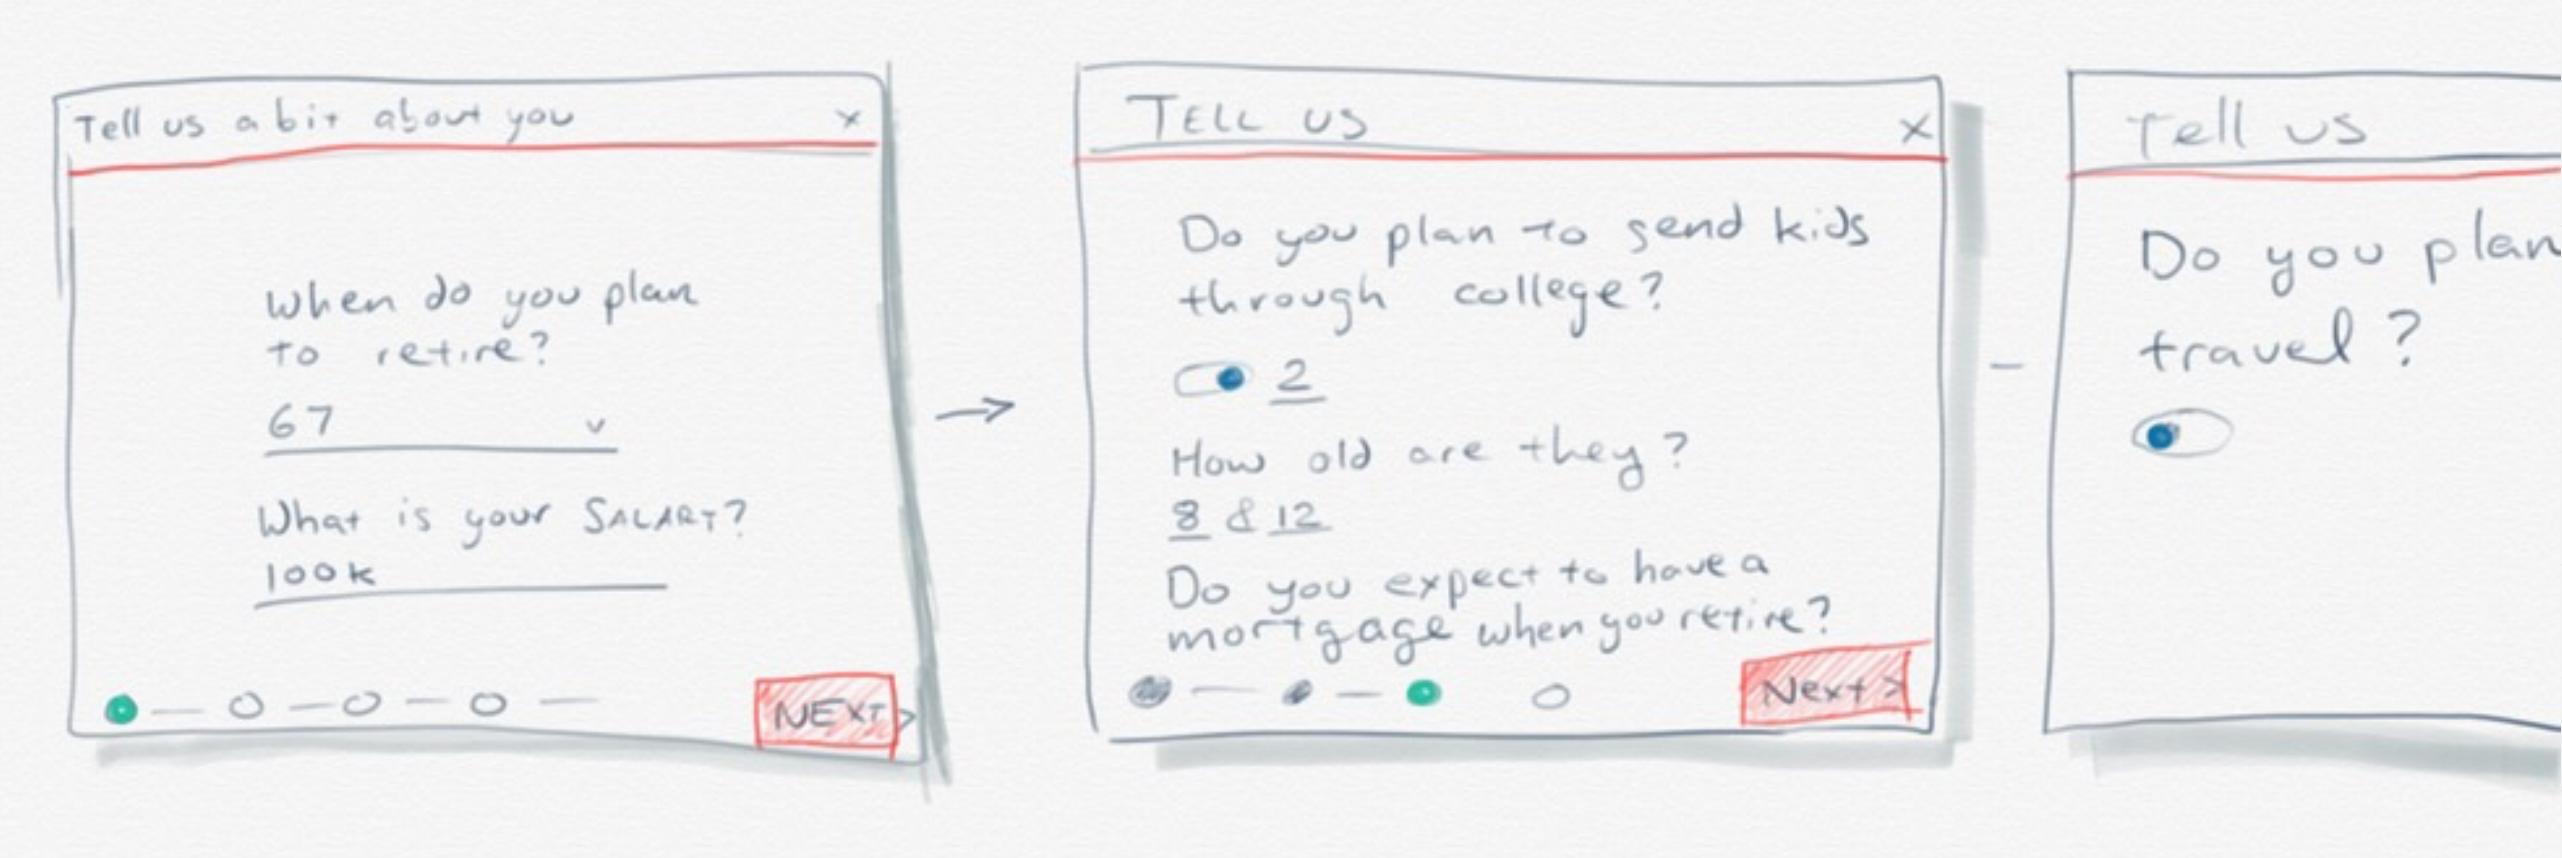 Tell us a bit about you x
When do you plan
to retire?
67 v
What is your SALARY?
100k
NEXT >
TELL US x
Do you plan to send kids
through college?
2
How old are they?
8 & 12
Do you expect to have a
mortgage when you retire?
Next >
Tell us
Do you plan
travel?